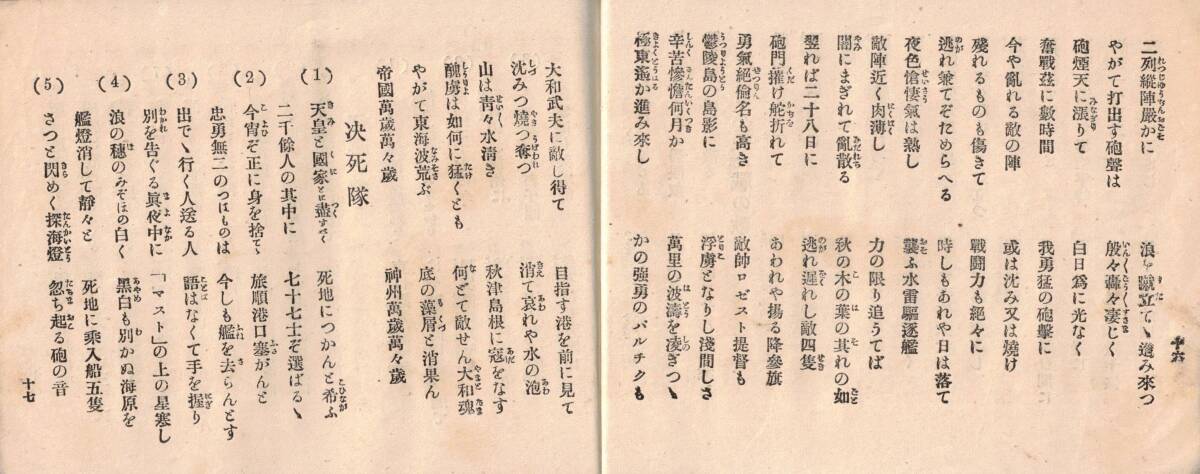 二列縱陣嚴かに　浪を蹴立てゝ進み來つ
やがて打出す砲聲は　殷々轟々凄じく
砲煙天に漲りて　白日爲に光なく
奮戰玆に數時間　我勇猛の砲擊に
今や亂れる敵の陣　或は沈み又は燒け
殘れるものも傷きて　戰鬪力も絶々に
逃れ兼てぞためらへる　時しもあれや日は落て
夜色愴悽氣は熟し　襲ふ水雷驅逐艦
敵陣近く肉薄し　力の限り追うてば
闇にまぎれて亂散る　秋の木の葉の其れの如
翌れば二十八日に　逃れ遲れし敵四隻
砲門摧け舵折れて　あわれや揚る降參旗
勇氣絶倫名も高き　敵帥ロゼスト提督も
鬱陵島の島影に　浮虜となりし淺間しさ
辛苦慘憺何月か　萬里の波濤を凌ぎつゝ
極東遙か進み來し　かの强勇のバルチクも
十六
大和武夫に敵し得て　目指す港を前に見て
沈みつ燒つ奪つ　消て哀れや水の泡
山は靑々水淸き　秋津島根に寇をなす
醜虜は如何に猛くとも　何どて敵せん大和魂
やがて東海波荒ぶ　底の藻屑と消果ん
帝國萬歲萬々歲　神州萬歲萬々歲
决死隊
(1)　天皇と國家とに盡すべく　死地につかんと希ふ
二千餘人の其中に　七十七士ぞ選ばるゝ
(2)　今宵ぞ正に身を捨てゝ　旅順港口塞がんと
忠勇無二のつはものは　今しも艦を去らんとす
(3)　出でゝ行く人送る人　語はなくて手を握り
別を告ぐる眞夜中に　「マスト」の上の星寒し
(4)　浪の穗のみぞほの白く　黑白も別かぬ海原を
艦燈消して靜々と　死地に乘入船五隻
(5)　さつと閃めく探海燈　忽ち起る砲の音
十七